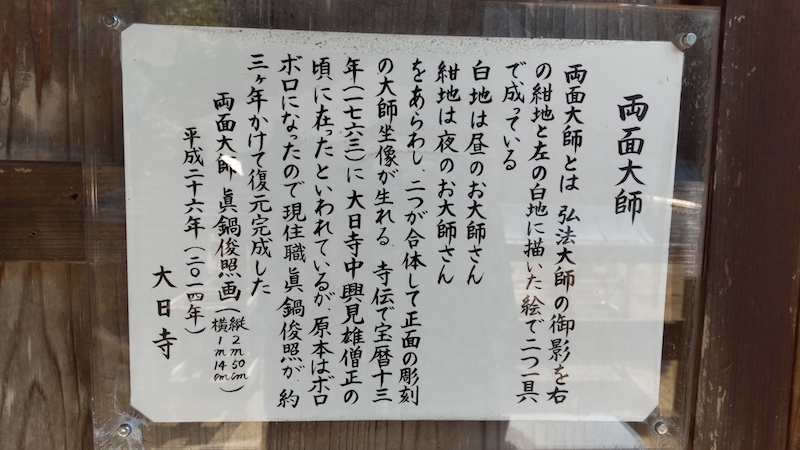 両面大師
両面大師とは 弘法大師の御影を右
の紺地と左の白地に描いた絵で二つ一具
で、成っている
白地は昼のお大師さん
紺地は夜のお大師さん
をあらわし、二つが合体して正面の彫刻
の大師坐像が生れる、寺伝で宝暦十三
年(一七六三)に大日寺中興見雄僧正の
頃に在ったといわれているが、原本はボロ
ボロになったので現住職眞鍋俊照が、約
三ヶ年かけて復元完成した
両面大師 眞鍋俊照画(縦2m50cm 横1m14cm)
平成二十六年(二〇一四年)
大日寺